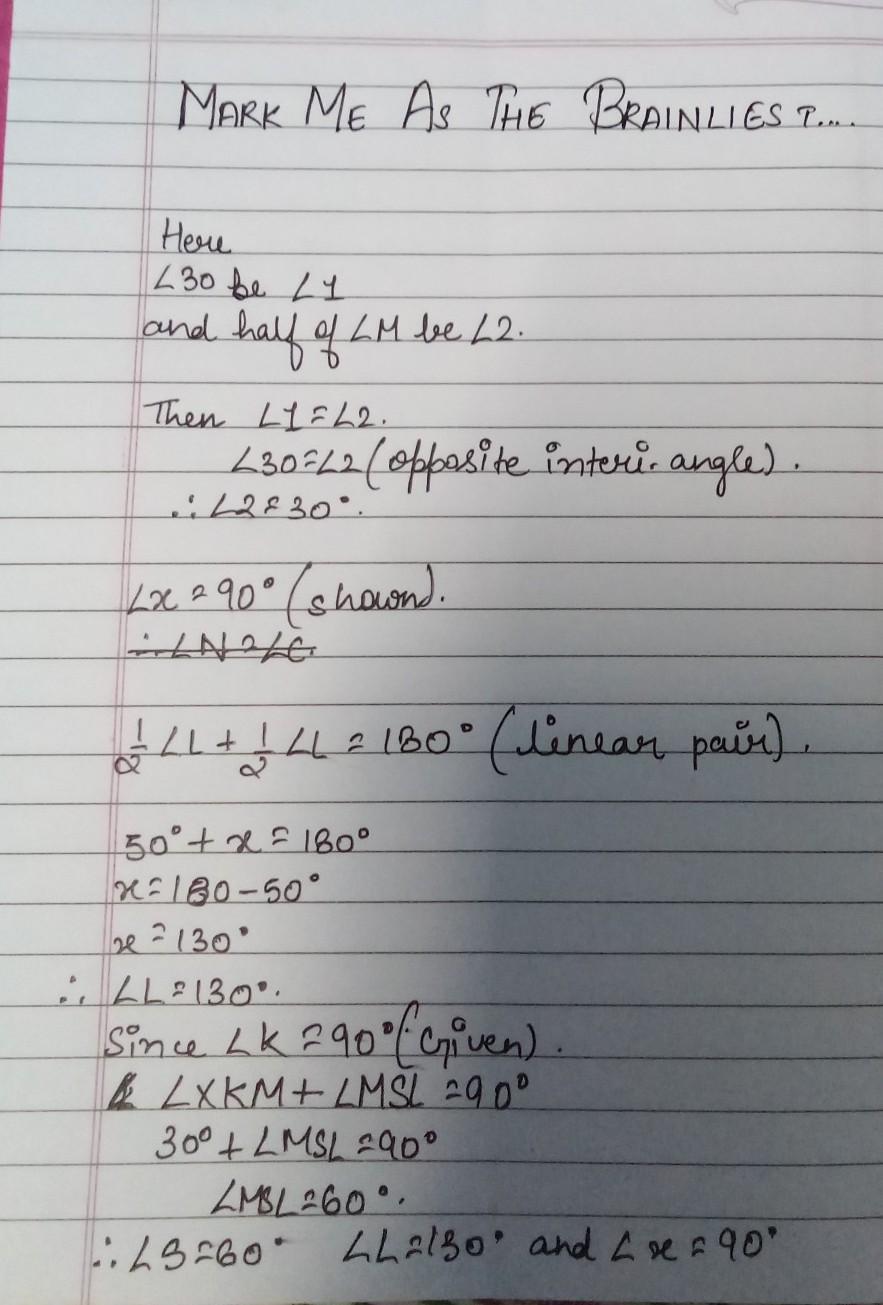 MARK ME AS THE BRAINLIEST....
Here
∠30 be ∠1
and half of ∠M be ∠2.
Then ∠1=∠2.
∠30=∠2 (opposite interi. angle).
∴ ∠2=30°.
∠x=90° (shown).
∴ ∠N=∠C.
1/2 ∠L + 1/2 ∠L = 180° (linear pair).
50°+x=180°
x=180-50°
x=130°
∴ ∠L=130°.
Since ∠K=90° (Given).
∠XKM+∠MSL=90°
30°+∠MSL=90°
∠MSL=60°.
∴ ∠S=60° ∠L=130° and ∠x=90°